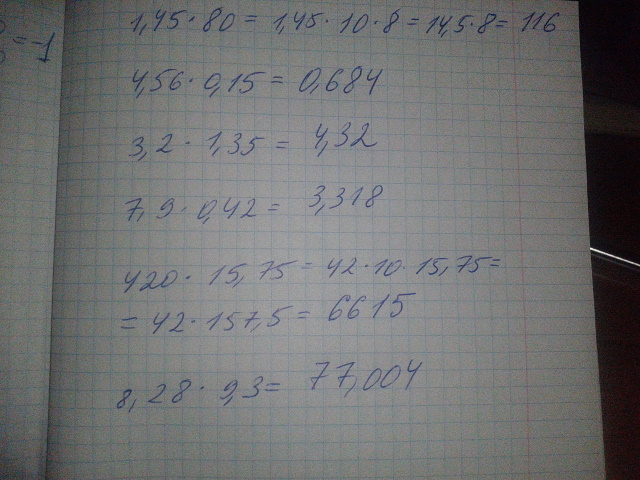 =-1
1,45·80 = 1,45·10·8 = 14,5·8 = 116
4,56·0,15 = 0,684
3,2·1,35 = 4,32
7,9·0,42 = 3,318
420·15,75 = 42·10·15,75 =
= 42·157,5 = 6615
8,28·9,3 = 77,004